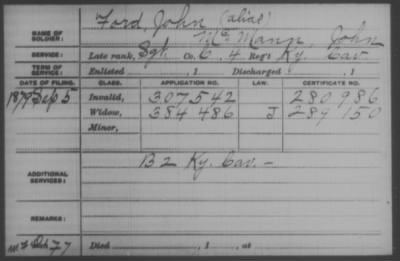 Ford, John (alias)
NAME OF SOLDIER: McMann, John
SERVICE: Late rank, Sgt Co. C, 4 Reg't Ky. Cav.
TERM OF SERVICE: Enlisted , 1 Discharged , 1
DATE OF FILING. CLASS. APPLICATION NO. LAW. CERTIFICATE NO.
1879 Sep 5 Invalid, 307542 280986
Widow, 384486 J 289150
Minor,
ADDITIONAL SERVICES: B 2 Ky. Cav. -
REMARKS:
77 Died , 1 , at